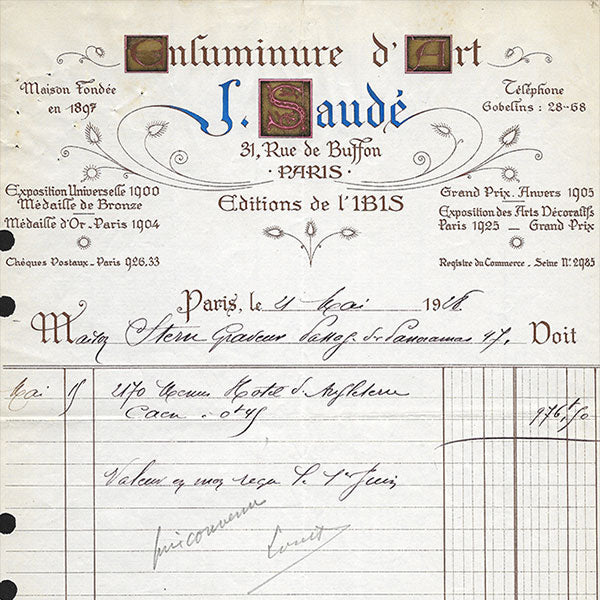 Enluminure d'Art
Maison Fondée
en 1897
J. Saudé
Téléphone
Gobelins : 28-68
31, Rue de Buffon
· PARIS ·
Editions de l'IBIS
Exposition Universelle 1900
Médaille de Bronze
Médaille d'Or - Paris 1904
Chèques Postaux - Paris 926.33
Grand Prix. Anvers 1905
Exposition des Arts Décoratifs
Paris 1925 - Grand Prix
Registre du Commerce - Seine N° 2985
Paris, le 21 Mai 1928
Maison Stern Graveur Passag. des Panoramas 47. Doit
Mai 15 2170 Menus Hotel d'Angleterre
Caen à 0f45 976f,50
Valeur en mon reçu le 1er Juin
prix convenu